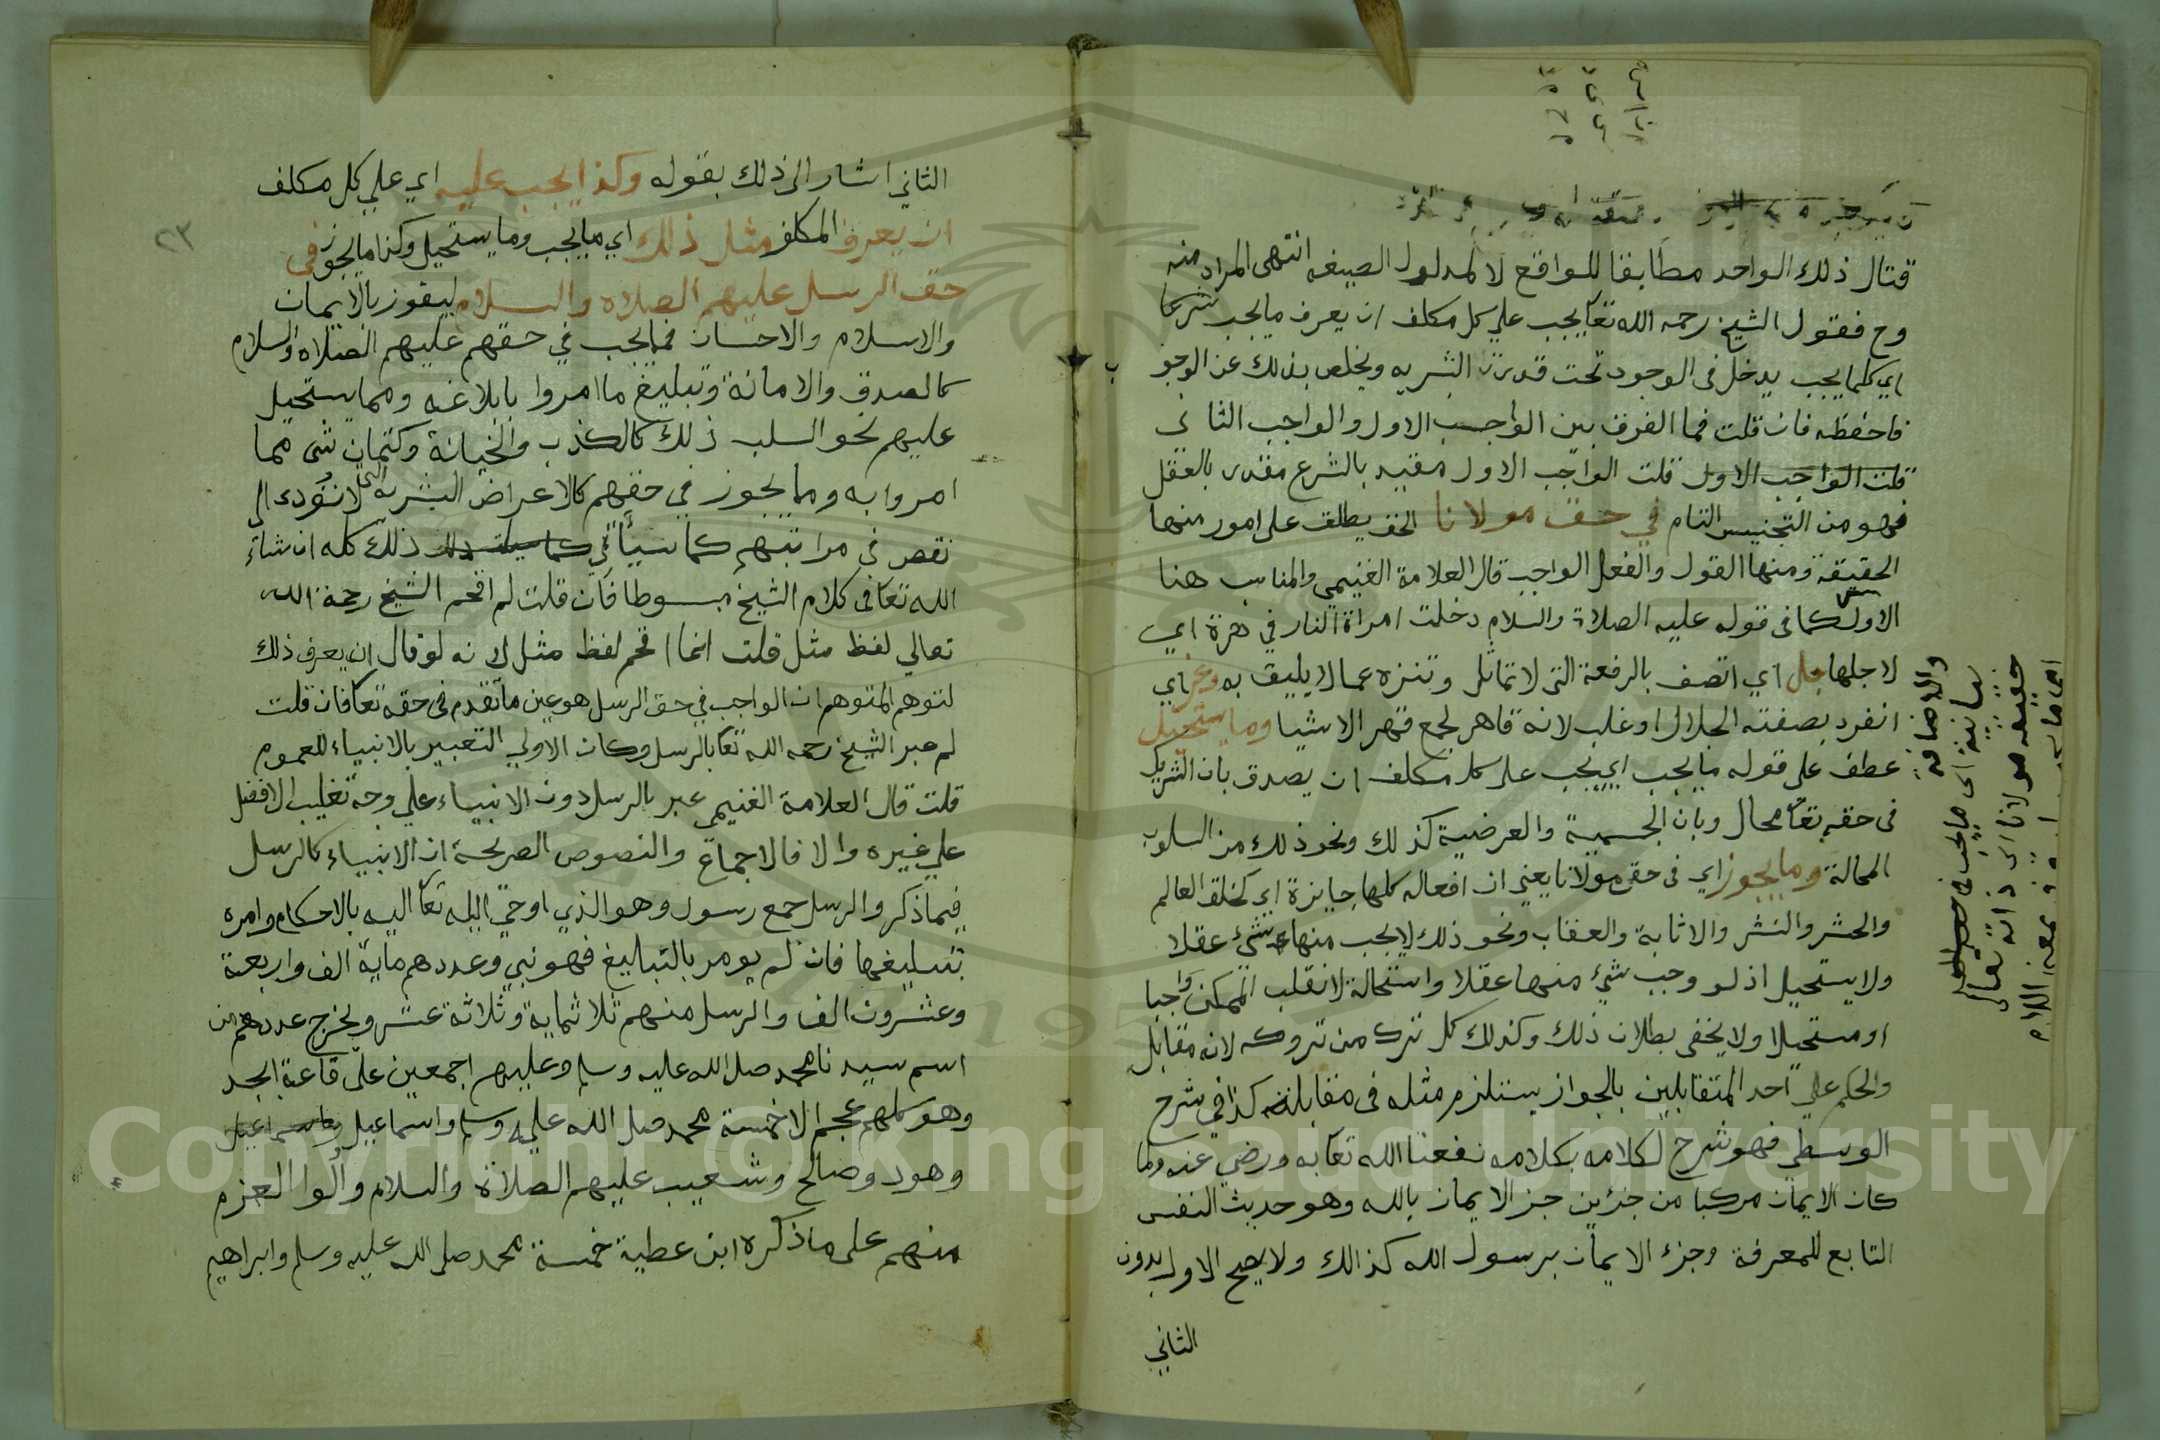 قتال ذلك الواحد مطابقا للواقع لا لمدلول الصيغه انتهى المراد منه
وح فقول الشيخ رحمه الله تعا يجب علي كل مكلف ان يعرف ما يجب شرعا
اي كلما يجب يدخل فى الوجود تحت قدرت البشريه ويخلص بذلك عن الوجو ب
فاحفظه فان قلت فما الفرق بين الواجب الاول والواجب الثاني
قلت الواجب الاول قلت الواجب الاول مقيد بالشرع مقدر بالعقل
فهو من التجنيس التام في حق مولانا الحق يطلق على امور منها
الحقيقه ومنها القول والفعل الواجب قال العلامة الغنيمي والمناسب هنا
الاول كما فى قوله عليه الصلاة والسلام دخلت امراة النار في هرة اي
لاجلها جل اي اتصف بالرفعة التى لا تماثل وتنزه عما لا يليق به وعز اي
انفرد بصفته الجلال او غلب لانه قاهر لجمع قهر الاشيا وما يستحيل
عطف على قوله ما يجب اي يجب على كل مكلف ان يصدق بان الشريك
فى حقه تعا محال وبان الجسمية والعرضية كذلك ونحو ذلك من السلوب
المحالة وما يجوز اي فى حق مولانا يعني ان افعاله كلها جايزة اي كخلق العالم
والحشر والنشر والاثابة والعقاب ونحو ذلك لا يجب منها شئ عقلا
ولا يستحيل اذ لو وجب شئ منها عقلا واستحالة لانقلب الممكن واجبا
او مستحيلا ولا يخفى بطلان ذلك وكذلك كل ترك من تروكه لانه مقابل
والحكم علي احد المتقابلين بالجواز يستلزم مثله فى مقابلته كذا في شرح
الوسطي فهو شرح لكلامه بكلامه نفعنا الله تعا به ورضي عنه ولما
كان الايمان مركبا من جزئين جز الايمان بالله وهو حديث النفس
التابع للمعرفة وجزء الايمان برسول الله كذالك ولا يصح الاول بدون
الثاني
والاضافة
بيانية اى ما يجب فى
حقيقه مولانا اى ذاته تعالى
٢٣
الثاني اشار الى ذلك بقوله وكذا يجب عليه اي علي كل مكلف
ان يعرف المكلف مثل ذلك اي ما يجب وما يستحيل وكذا ما يجوز فى
حق الرسل عليهم الصلاه والسلام ليفوز بالايمان
والاسلام والاحسان فمما يجب في حقهم عليهم الصلاه والسلام
كالصدق والامانة وتبليغ ما امروا بابلاغه ومما يستحيل
عليهم نحو السلب ذلك كالكذب والخيانة وكتمان شى مما
امروا به ومما يجوز في حقهم كالاعراض البشريه التى لا تؤدى الى
نقص فى مراتبهم كما سيأتي كما سيأتى ذلك ذلك كله ان شاء
الله تعا فى كلام الشيخ مبسوطا فان قلت لم اقحم الشيخ رحمة الله
تعالي لفظ مثل قلت انما اقحم لفظ مثل لانه لو قال ان يعرف ذلك
لتوهم المتوهم ان الواجب في حق الرسل هو عين ما تقدم فى حقه تعا فان قلت
لم عبر الشيخ رحمه الله تعا بالرسل وكان الاولي التعبير بالانبياء للعموم
قلت قال العلامة الغنيمي عبر بالرسل دون الانبياء علي وجه تغليب الافضل
علي غيره والا فالاجماع والنصوص الصريحة ان الانبياء كالرسل
فيما ذكر والرسل جمع رسول وهو الذي اوحي الله تعا اليه بالاحكام وامره
بتبليغها فان لم يومر بالتبليغ فهو نبي وعددهم ماية الف واربعة
وعشرون الف والرسل منهم ثلاثماية وثلاثة عشر ويخرج عددهم من
اسم سيدنا محمد صلى الله عليه وسلم وعليهم اجمعين على قاعدة ابجد
وهو كلهم عجم الا خمسة محمد صلى الله عليه وسلم واسماعيل واسماعيل
وهود وصالح وشعيب عليهم الصلاة والسلام وألوا العزم
منهم على ما ذكره ابن عطية خمسة محمد صلى الله عليه وسلم وابراهيم
Copyright © King Saud University